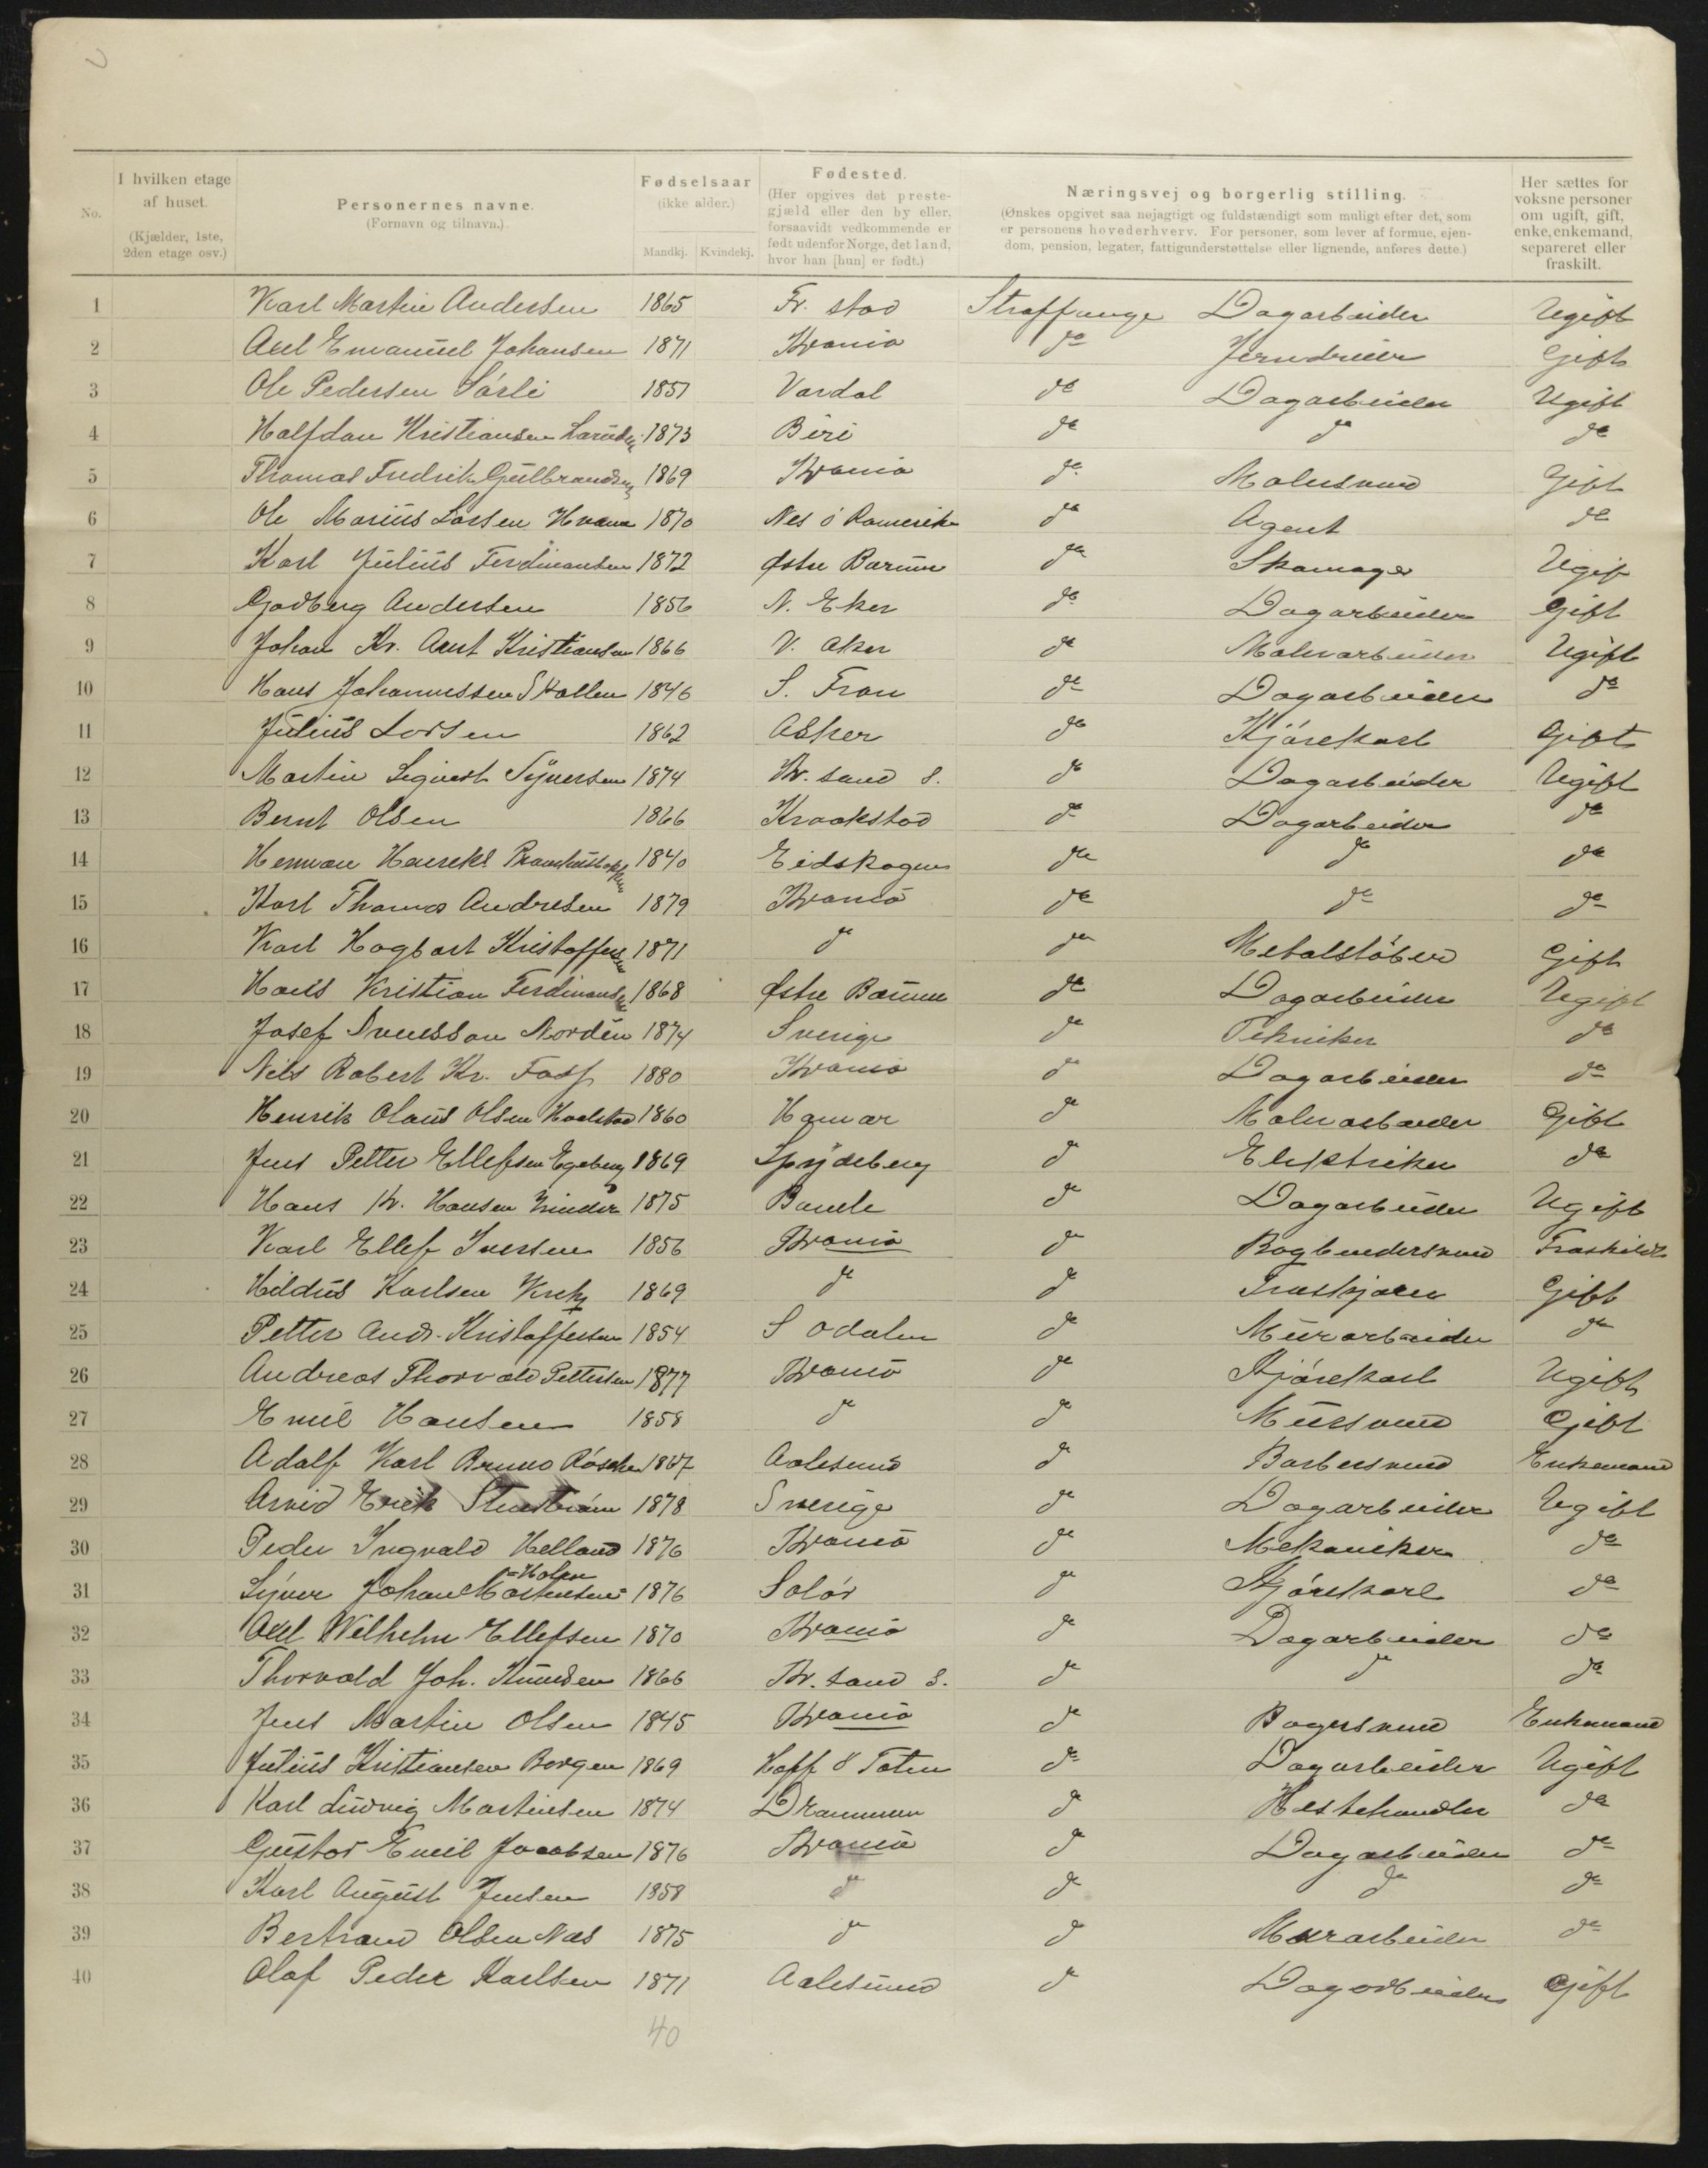 No.
I hvilken etage af huset.
(Kjælder, 1ste, 2den etage osv.)
Personernes navne.
(Fornavn og tilnavn.)
Fødselsaar
(ikke alder.)
Mandkj. Kvindekj.
Fødested.
(Her opgives det prestegjæld eller den by eller, forsaavidt vedkommende er født udenfor Norge, det land, hvor han [hun] er født.)
Næringsvej og borgerlig stilling.
(Ønskes opgivet saa nøjagtigt og fuldstændigt som muligt efter det, som er personens hovederhverv. For personer, som lever af formue, ejendom, pension, legater, fattigunderstøttelse eller lignende, anføres dette.)
Her sættes for voksne personer om ugift, gift, enke, enkemand, separeret eller fraskilt.
1 Karl Martin Andersen 1865 Fr. stad Straffange Dagarbeider Ugift
2 Axel Emanuel Johansen 1871 Krania do Jerndreier Gift
3 Ole Pedersen Sörli 1851 Vardal do Dagarbeider Ugift
4 Halfdan Kristiansen 1873 Biri do do do
5 Thomas Fredrik Gulbrandsen 1869 Krania do Malersvend Gift
6 Ole Marius Larsen 1870 Nes ö Romerike do Agent do
7 Karl Julius Ferdinansen 1872 Østre Barum do Skomager Ugift
8 Godberg Andersen 1856 N. Eker do Dagarbeider Gift
9 Johan Kr. Arnt Kristiansen 1866 V. Aker do Malerarbeider Ugift
10 Hans Johannessen Skallen 1846 S. Fron do Dagarbeider do
11 Julius Larsen 1862 Asker do Kjörekarl Gift
12 Martin Sigvart Synersen 1874 Kr. sand S. do Dagarbeider Ugift
13 Bernt Olsen 1866 Kraakstad do Dagarbeider do
14 Herman 1840 Eidskogen do do do
15 Karl Thomas Andresen 1879 Krania do do do
16 Karl Hagbart Kristoffersen 1871 do do Metalstöber Gift
17 Hans Kristian Ferdinansen 1868 Østre Barum do Dagarbeider Ugift
18 Josef Svensson Norden 1874 Sverige do Tekniker do
19 Nils Robert Kr. Foss 1880 Krania do Dagarbeider do
20 Henrik Olaus Olsen 1860 Hamar do Malerarbeider Gift
21 Jens Petter Ellefsen Egeberg 1869 Spydeberg do Elektriker do
22 Hans Kr. Hansen 1875 Bamle do Dagarbeider Ugift
23 Karl Ellef Iversen 1856 Krania do Bogbindersvend Fraskildt
24 Hildus Karlsen 1869 do do Gift
25 Petter Andr. Kristoffersen 1854 S Odalen do Murarbeider do
26 Andreas Thorvald Pettersen 1877 Krania do Kjörekarl Ugift
27 Emil Hansen 1858 do do Mursvend Gift
28 Adolf Karl Bruno 1867 Aalesund do Barbersvend Enkemand
29 Arvid Erik 1878 Sverige do Dagarbeider Ugift
30 Peder Ingvald Helland 1876 Krania do Mekaniker do
-Holen
31 Syver Johan Martinsen 1876 Solör do Kjörekarl do
32 Axel Wilhelm Ellefsen 1870 Krania do Dagarbeider do
33 Thorvald Joh. Knudsen 1866 Kr. sand S. do do do
34 Jens Martin Olsen 1845 Krania do Bagersvend Enkemand
35 Julius Kristiansen Borgen 1869 Hoff Ö Toten do Dagarbeider Ugift
36 Karl Ludvig Martinsen 1874 Drammen do Hestehandler do
37 Gustav Emil Jacobsen 1876 Krania do Dagarbeider do
38 Karl August Jensen 1858 do do do do
39 Bertrand Olsen Næs 1875 do do Murarbeider do
40 Olaf Peder Karlsen 1871 Aalesund do Dagarbeider Gift
40